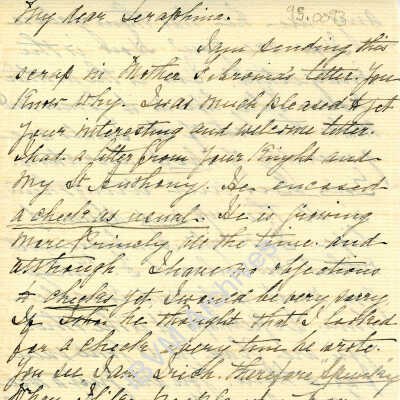 My dear Seraphine.
95.0093
I am sending this
scrap in Mother Sebronia's letter. You
Know why. I was much pleased to get
your interesting and welcome letter.
I had a letter from your Knight and
my St Anthony. He encased
a check as usual. He is growing
more Princely all the time. and
although I have no objections
to checks yet I would be very sorry
If he thought that I looked
for a check every time he wrote.
You see I am rich. therefore Spunky